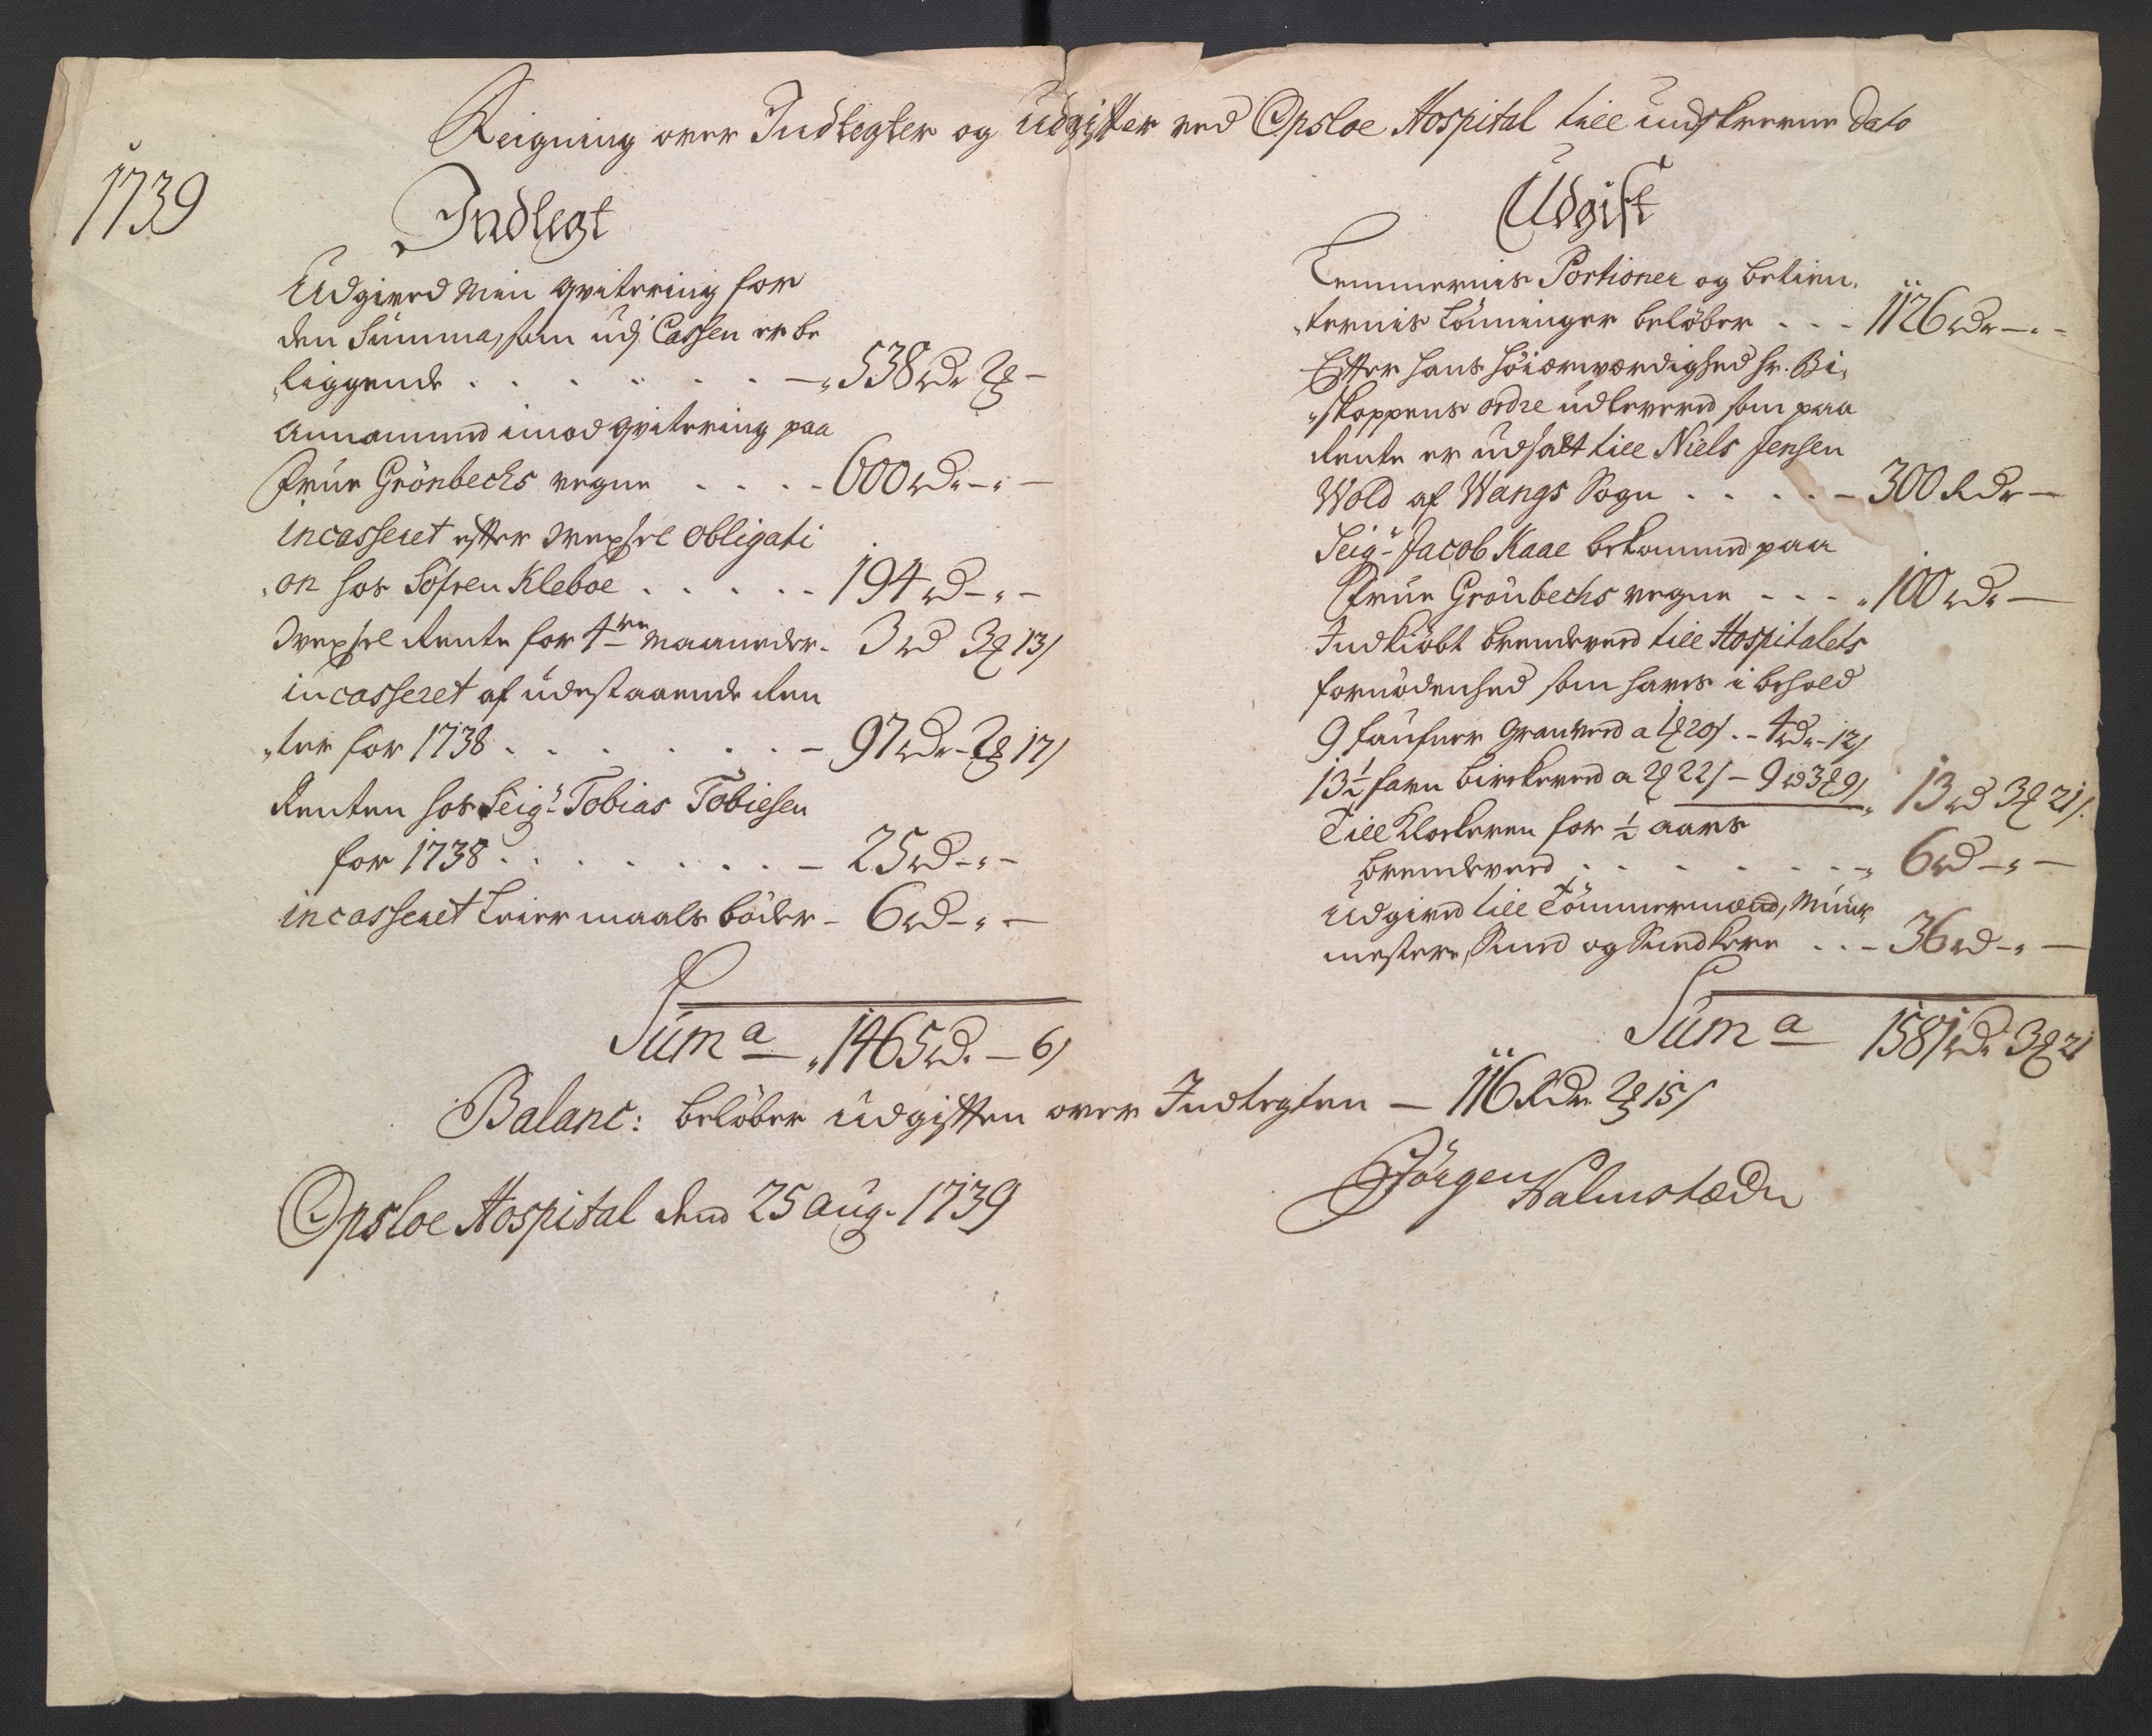 Reigning over Indtegter og Udgifter ved Opsloe Hospital till undskrevne Dato
1739
Indtegt
Udgived Min qvitering for
den Summa, som udj Cassen er be
liggende . . . . . . . - 538 rdr 2 ₰ -
Annammed imod qvitering paa
Frue Grönbechs vegne . . . . 600 rd. - " -
incasseret efter Wexsel obligati
on hos Söfren Kleboe . . . . . 194 rd - " -
Wexsel Rente for 4re Maaneder - 3 rd 3 ₰ 13 s
incasseret af udestaaende Ren
ter for 1738 . . . . . . . - 97 rdr - 2 ₰ 17 s
Renten hos Seigr Tobias Tobiesen
for 1738 . . . . . . . - 25 rd - " -
incasseret Leiermaals böder - 6 rd - " -
Suma 1465 rd. - 6 s
Udgift
Lemmernis Portioner og betien,
ternis Lönninger belöber . . . 1126 rdr - " -
Efter hans Höiærværdighed hr. Bi,
skoppens ordre udlevered som paa
Rente er udsatt till Niels Jensen
Wold af Wangs Sogn . . . . . - 300 Rdr -
Seigr Jacob Kaae bekommed paa
Frue Grönbechs vegne - - - 100 rdr -
Indkiöbt brendeved till Hospitalets
fornödenhed som haves i behold
9 faufner Granved a 1 ₰ 20 s . - 4 rdr - 12 s
13½ favn birckeved a 2 ₰ 22 s - 9 rd 3 ₰ 9 s 13 rd 3 ₰ 21 s.
Till Klockeren for ½ aars
brendeved . . . . . . . . 6 rd - " -
Udgived till Tömmermænd, Muur
mestere, Smed og Snedkere . . - 36 rd - " -
Suma 1581 rdr 3 ₰ 21
Balanc: belöber Udgiften over Indtegten - 116 Rdr. 2 ₰ 15 s
Opsloe Hospital dend 25 Aug. 1739
Jörgen Halmstædn